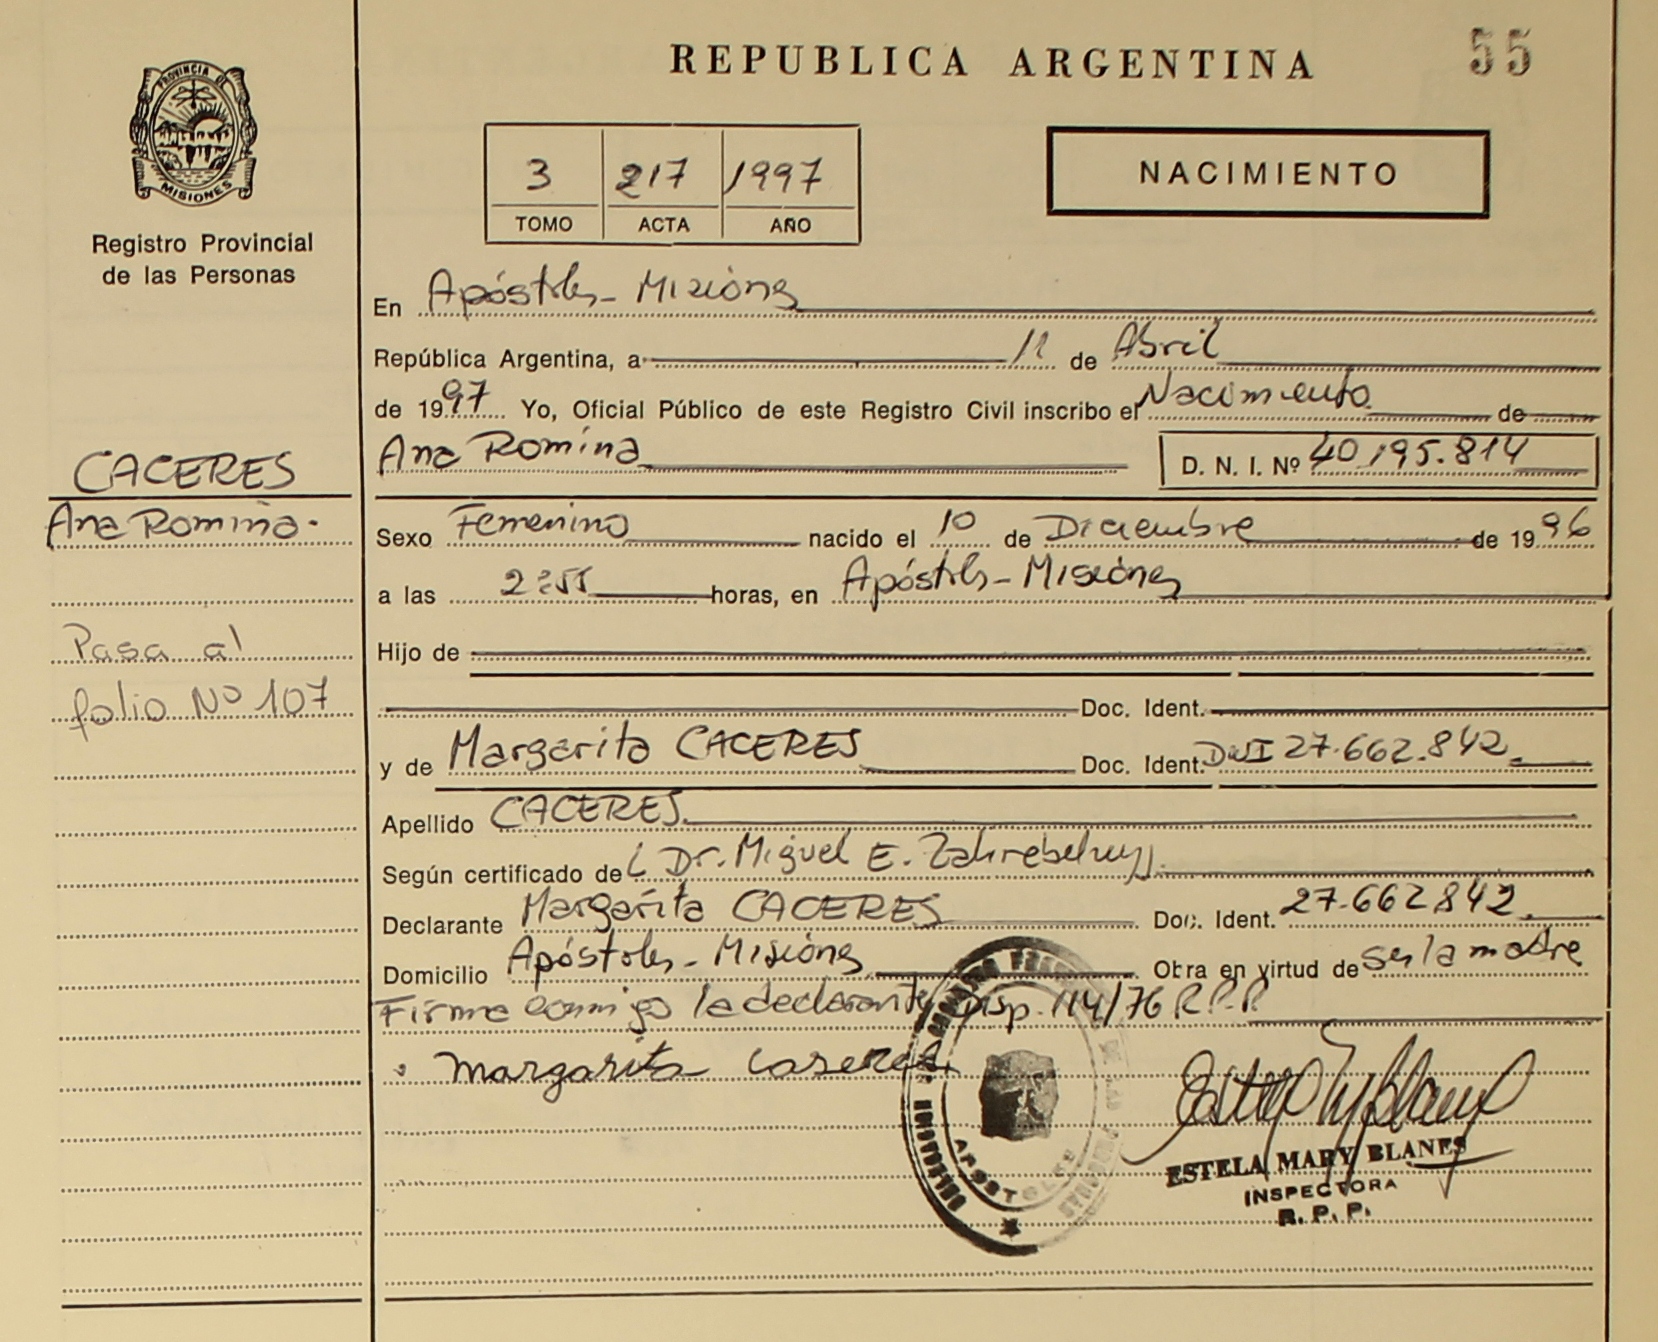 PROVINCIA DE
MISIONES
Registro Provincial
de las Personas
CACERES
Ana Romina.
Pasa al
folio Nº 107
REPUBLICA ARGENTINA
55
3 217 1997
TOMO ACTA AÑO
NACIMIENTO
En Apóstoles - Misiones
República Argentina, a 11 de Abril
de 1997 Yo, Oficial Público de este Registro Civil inscribo el Nacimiento de
Ana Romina D. N. I. Nº 40.195.814
Sexo Femenino nacido el 10 de Diciembre de 1996
a las 2:55 horas, en Apóstoles - Misiones
Hijo de
Doc. Ident.
y de Margarita CACERES Doc. Ident. DNI 27.662.842
Apellido CACERES
Según certificado de (Dr. Miguel E.
Declarante Margarita CACERES Doc. Ident. 27.662842
Domicilio Apóstoles - Misiones Obra en virtud de ser la madre
Firma conmigo la declarante Disp. 114/76 R.P.P
Margarita Caseres
APOSTOLES
ESTELA MARY BLANES
INSPECTORA
R. P. P.